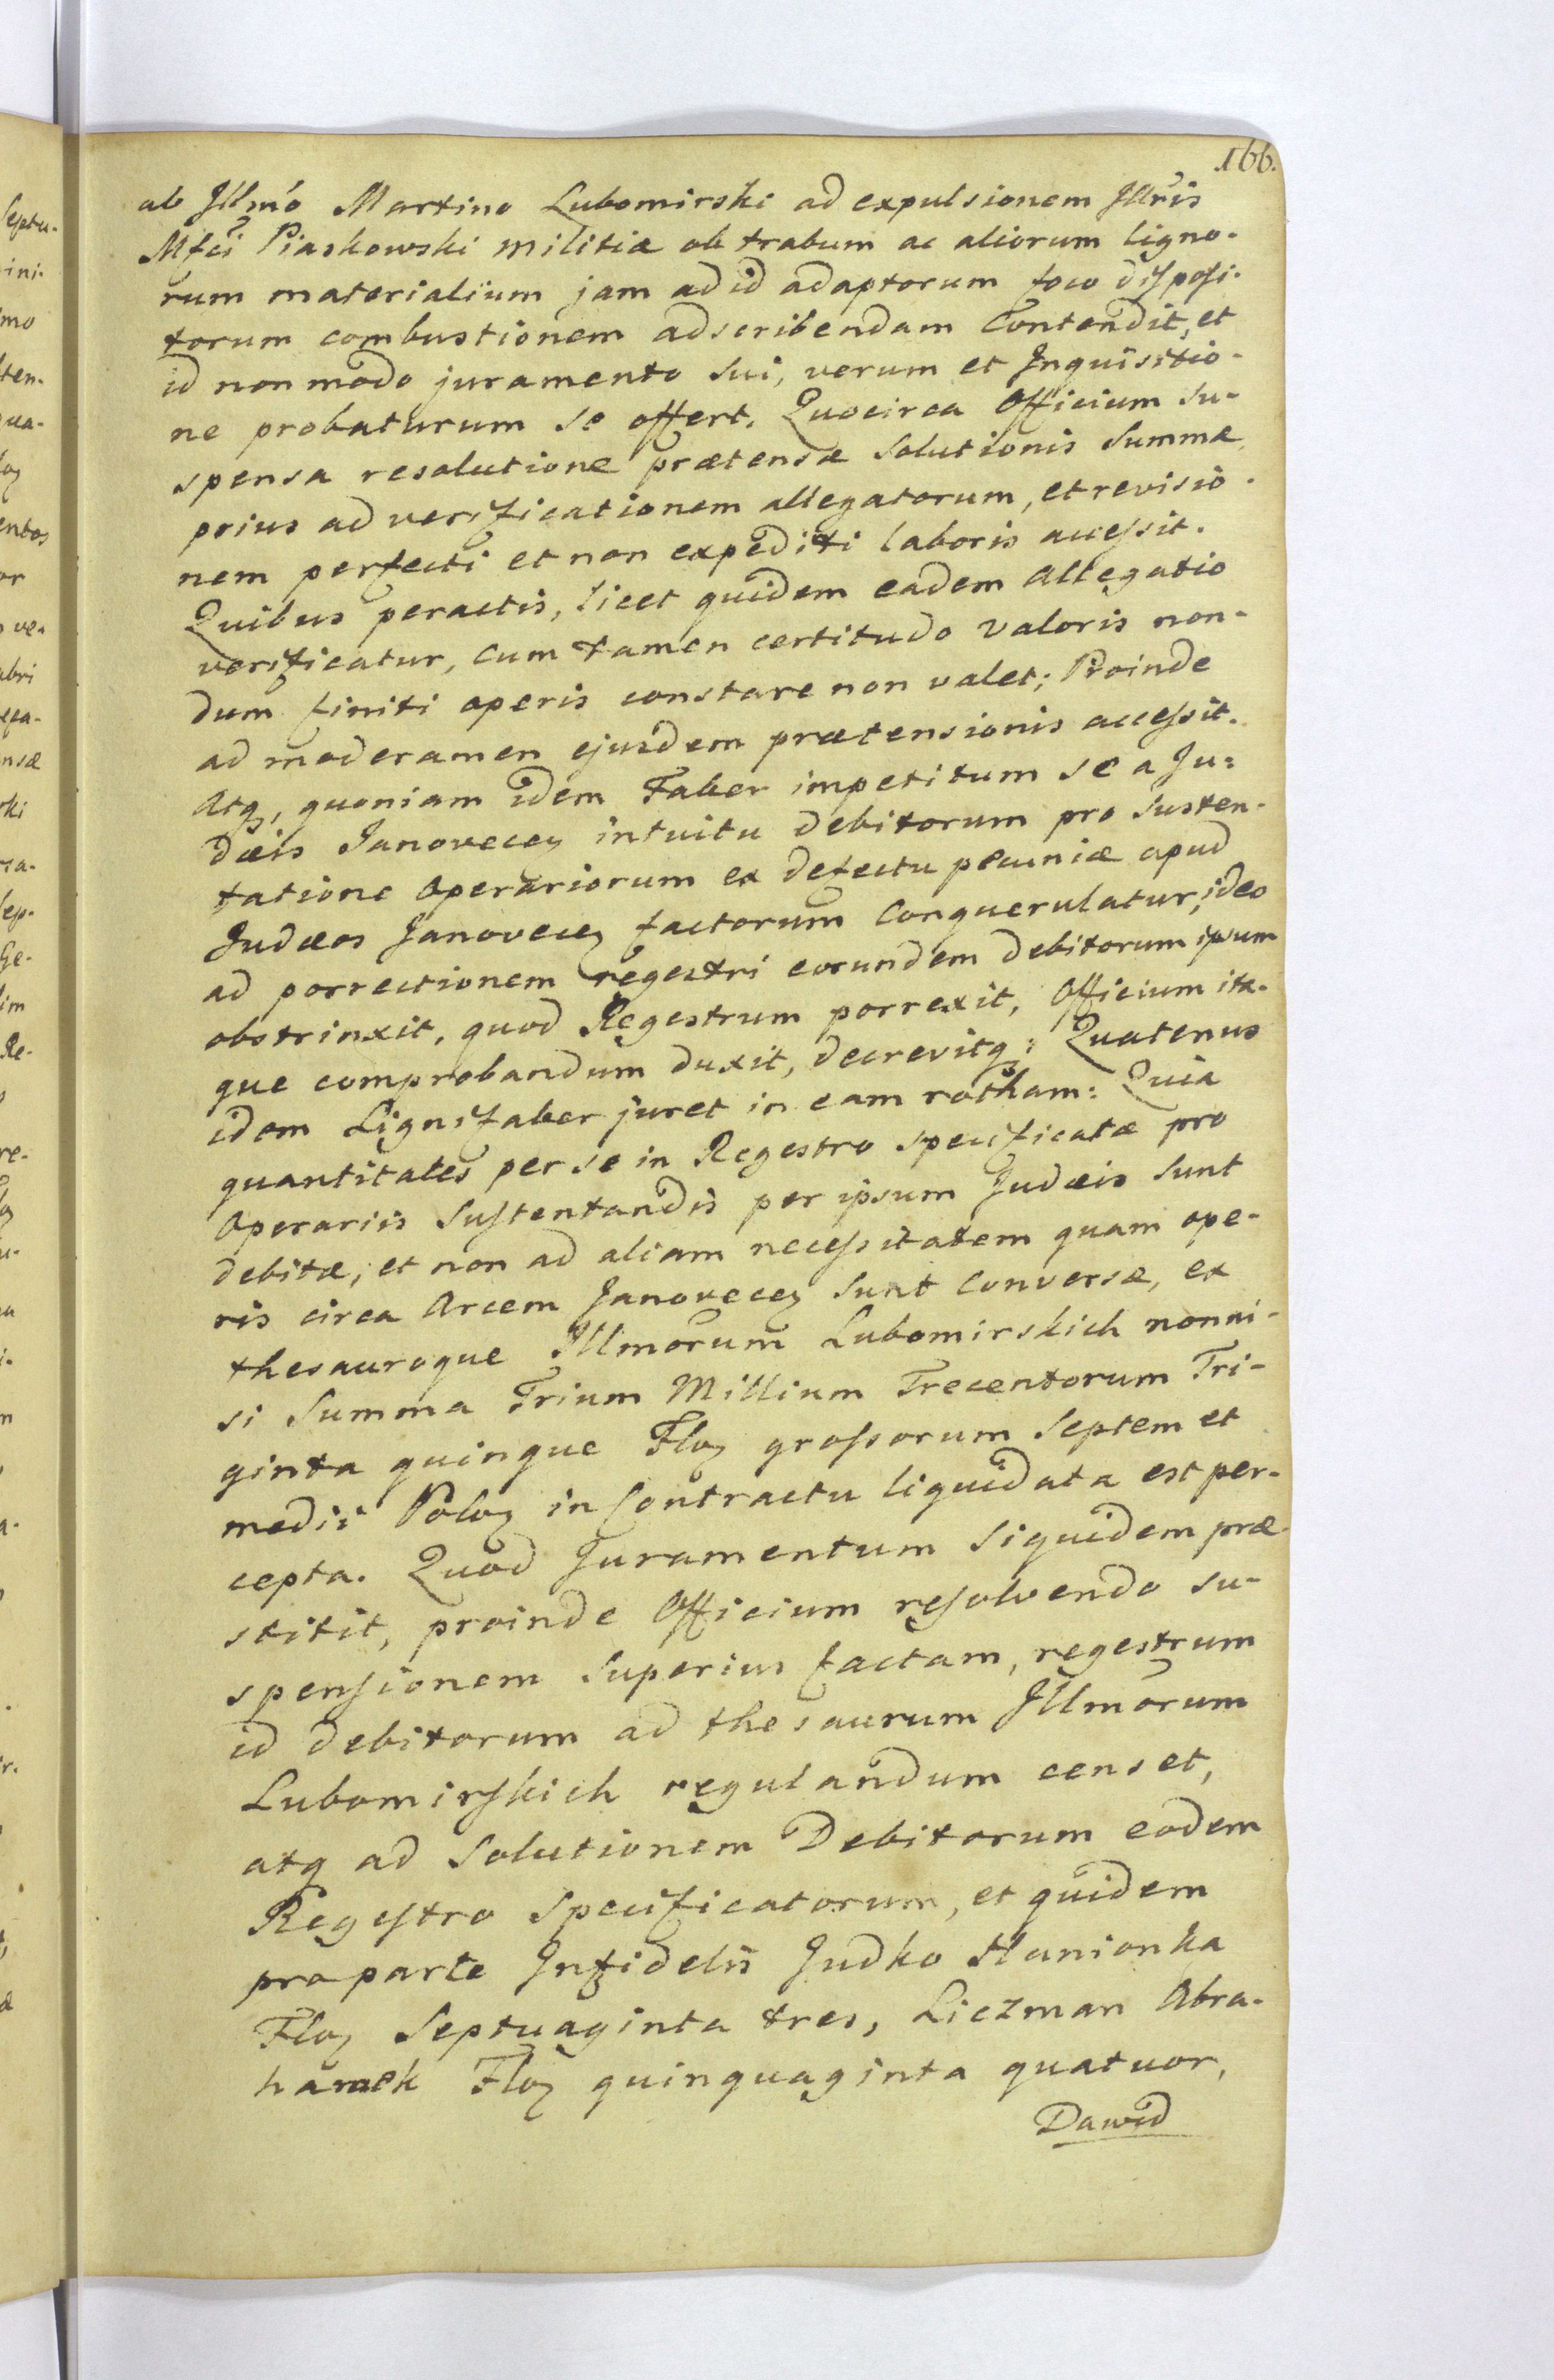 166.
ab Jllmo Martino Lubomirski ad expulsionem Jllris
Mfci Piaskowski militiæ ob trabum ac aliorum ligno-
rum materialium jam ad id adaptorum loco disposi-
torum combustionem adscribendam contendit, et
id non modo juramento sui, verum et Jnquisitio-
ne probaturum se offert. Quocirca Officium su-
spensa resolutione prætensæ solutionis summæ
prius ad verificationem allegatorum, et revisio-
nem perfecti et non expediti laboris accessit.
Quibus peractis, licet quidem eadem allegatio
verificatur, cum tamen certitudo valoris non-
dum finiti operis constare non valet; Proinde
ad moderamen ejusdem prætensionis accessit.
Atq, quoniam idem Faber impetitum se a Ju:
dæis Janovecen intuitu debitorum pro susten-
tatione operariorum ex defectu pecuniæ apud
Judæos Janovecen factorum conquerulatur, ideo
ad porrectionem regestri eorundem debitorum ipsum
obstrinxit, quod Regestrum porrexit, Officium ita-
que comprobandum duxit, decrevitq: Quatenus
idem Lignifaber juret in eam rotham: Quia
quantitates per se in Regestro specificatæ pro
Operariis sustentandis per ipsum Judæis sunt
debitæ, et non ad aliam necessitatem quam ope-
ris circa Arcem Janovecen sunt conversæ, ex
thesauroque Jllmorum Lubomirskich nonni-
si summa Trium Millium Trecentorum Tri-
ginta quinque Floz grossorum septem et
medii Poloz in Contractu liquidata est per-
cepta. Quod Juramentum siquidem præ-
stitit, proinde Officium resolvendo su-
spensionem superius factam, regestrum
id debitorum ad thesaurum Jllmorum
Lubomirskich regulandum censet,
atq ad solutionem Debitorum eodem
Regestro specificatorum, et quidem
pro parte Infidelis Judko Hunionka
Floz septuaginta tres, Liczman Abra-
hamek Floz quinquaginta quatuor,
Dawid